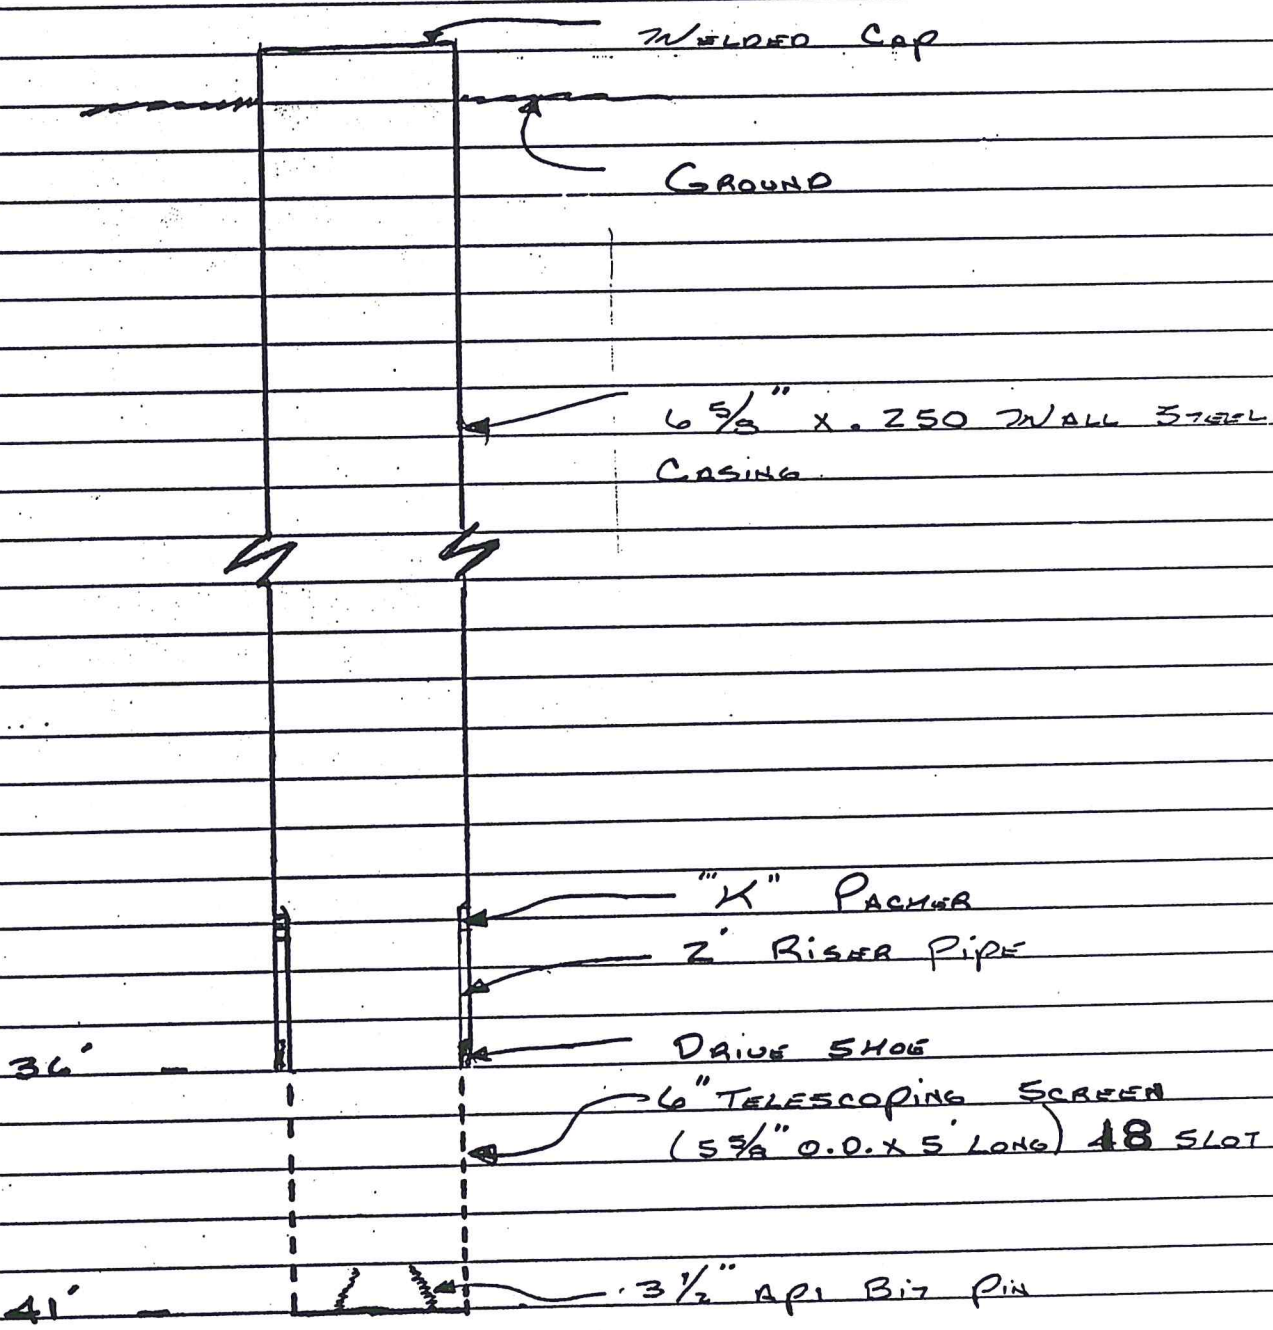 WELDED CAP
GROUND
6 5/8" X .250 WALL STEEL
CASING
"K" PACKER
2' RISER PIPE
DRIVE SHOE
36'
6" TELESCOPING SCREEN
(5 5/8" O.D. X 5' LONG) 48 SLOT
3 1/2" API BIT PIN
41'